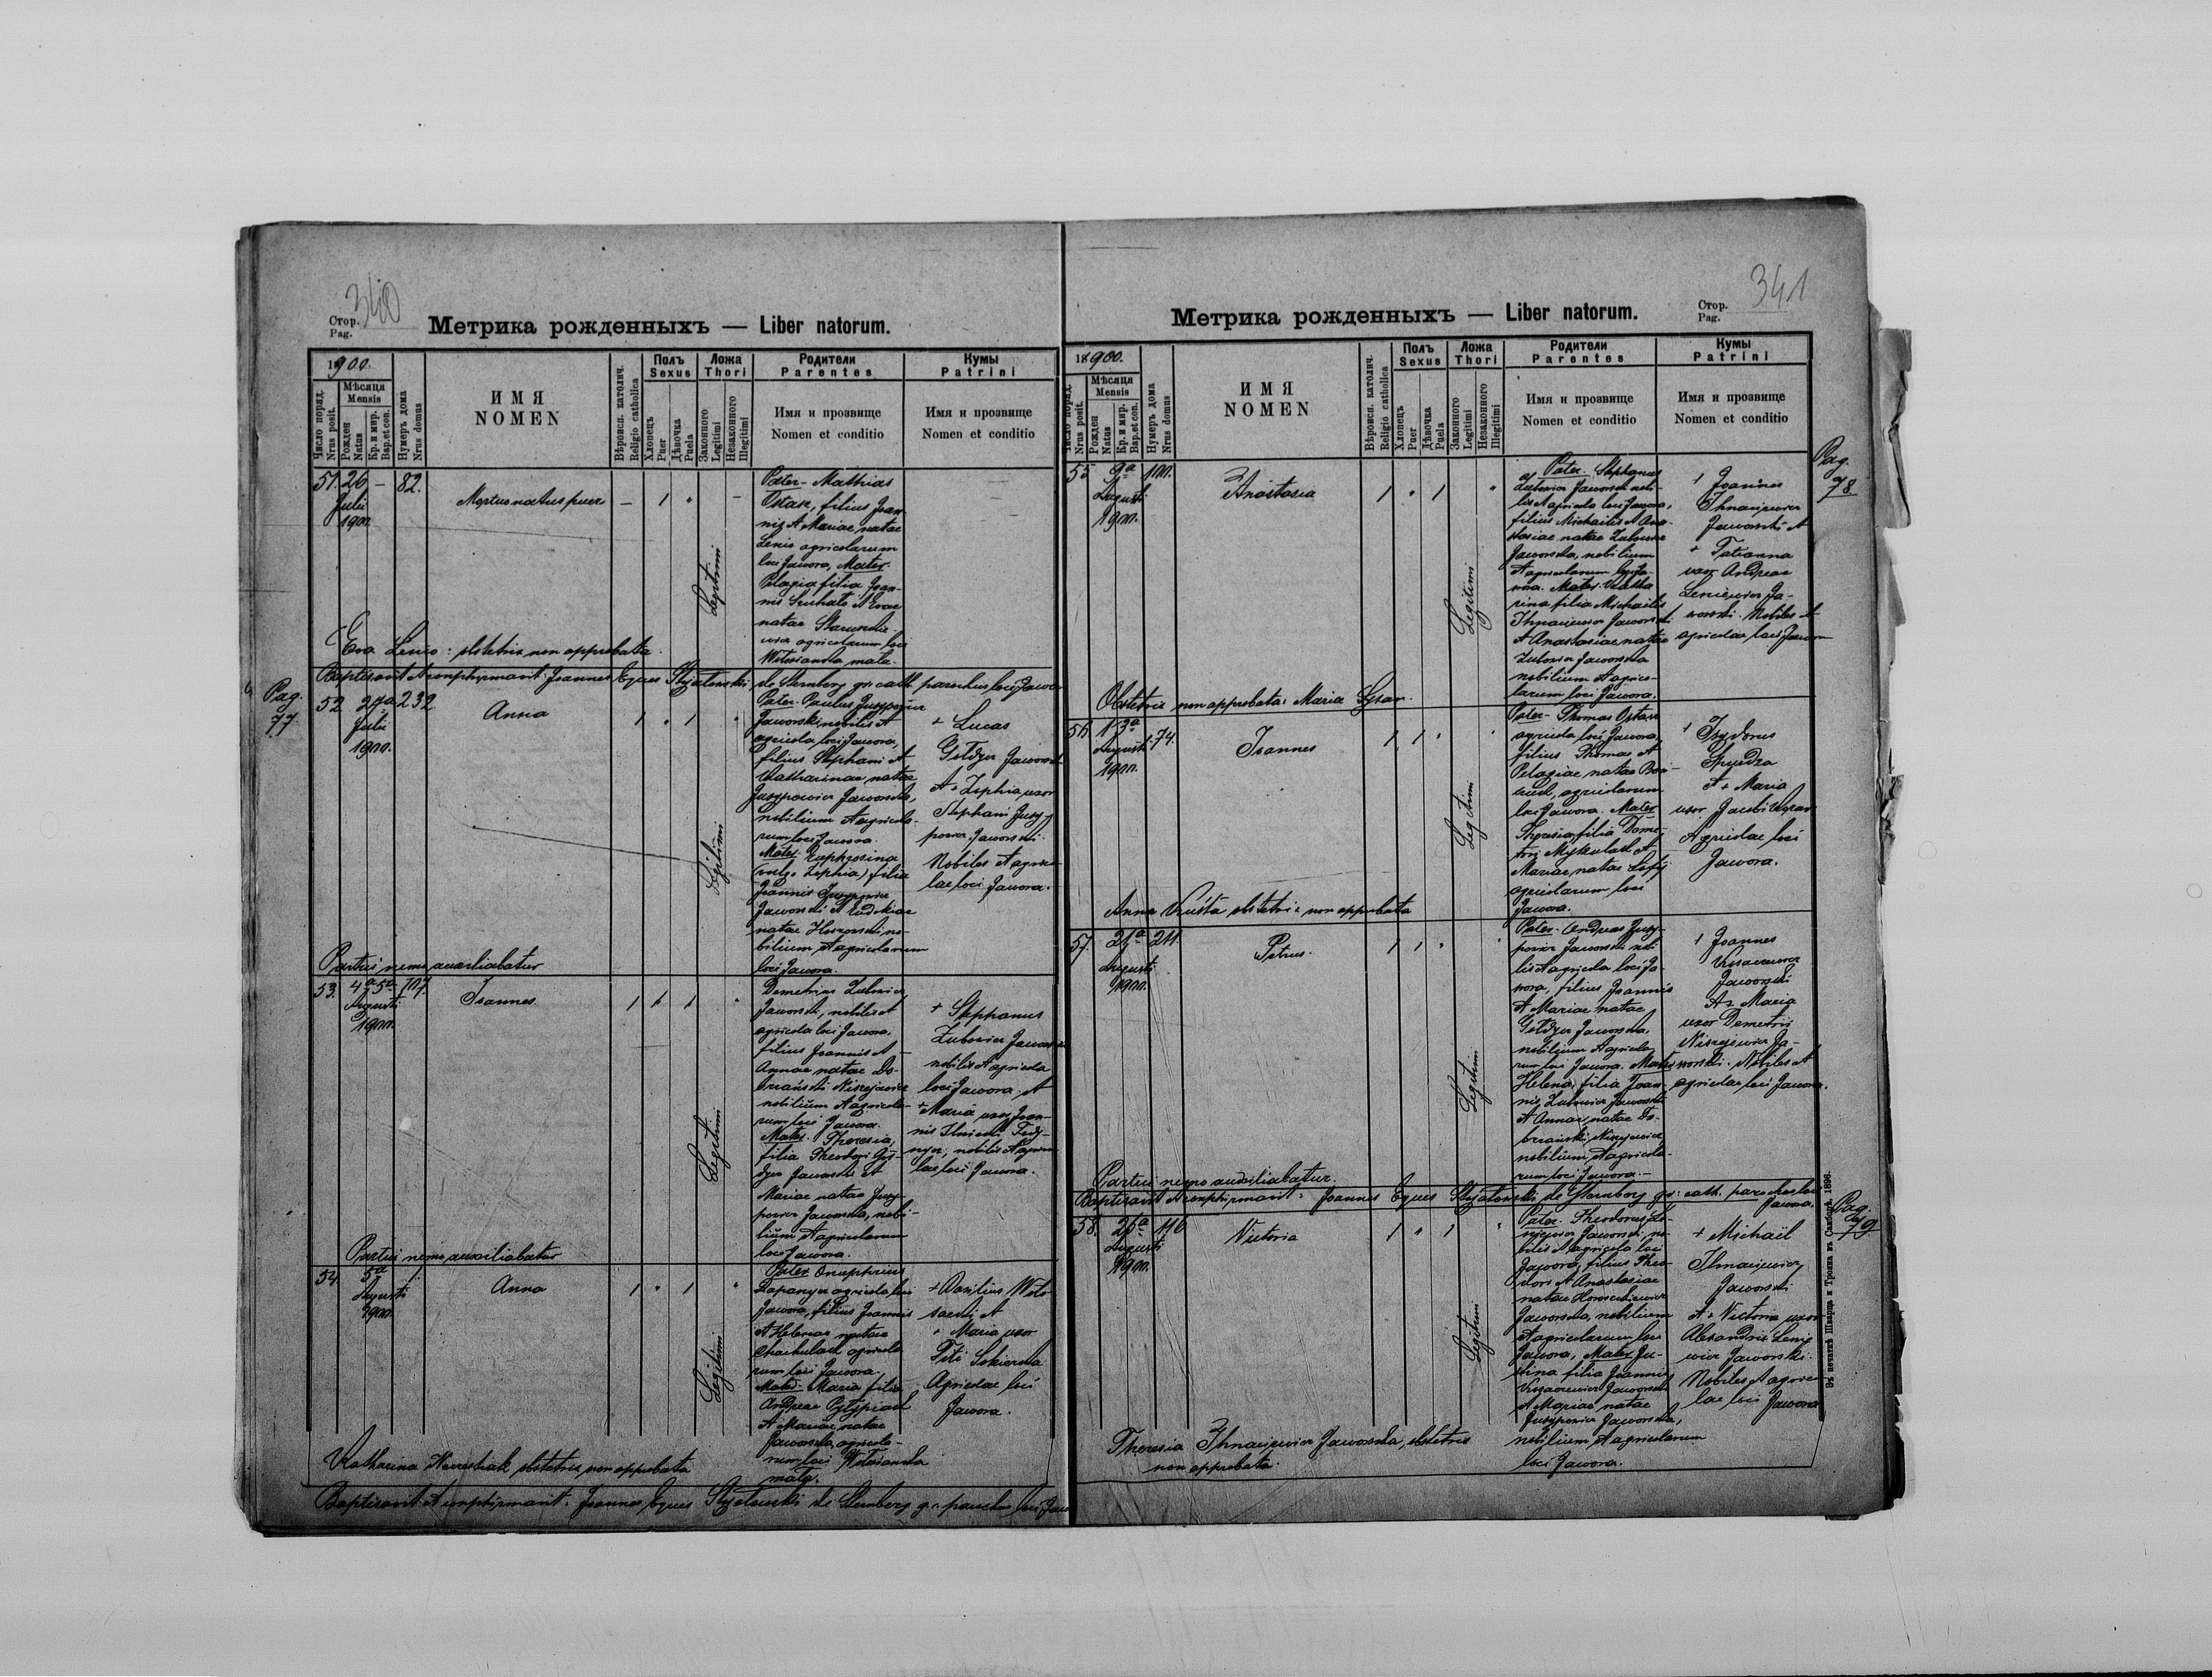 340
Стор.
Pag.
Метрика рожденныхъ — Liber natorum.
1900.
Число поряд.
Nrus posit.
Мѣсяца
Mensis
Рожден
Natus
Кр. и мир.
Bap. et con.
Нумеръ дома
Nrus domus
ИМЯ
NOMEN
Вѣроисп. католич.
Religio catholica
Полъ
Sexus
Хлопецъ
Puer
Дѣвочка
Puela
Ложа
Thori
Законного
Legitimi
Незаконного
Illegitimi
Родители
Parentes
Имя и прозвище
Nomen et conditio
Кумы
Patrini
Имя и прозвище
Nomen et conditio
51. 26 — 82.
Julii
1900.
Mortuo natus puer — 1 "
Legitimi
Pater - Mathias
Ostasz, filius Joan-
nis et Mariae natae
Lenio agricolarum
loci Jawora, Mater
Pelagia filia Joan-
nis et Evae
natae
agricolarum loci
mala.
Eva Lenio: obstetrix non approbata.
Baptisavit et confirmavit: Joannes Eques de Sternberg gr. cath. parochus loci Jawora
Pag.
77.
52 232
Julii
1900.
Anna 1 " 1 "
Legitimi
Pater - Paulus Juzypowicz
Jaworski nobilis et
agricola loci Jawora,
filius Stephani et
Catharinae natae
Juzypowicz Jaworska,
nobilium et agricola-
rum loci Jawora.
Mater Euphrosina
(vulgo Zophia) filia
Joannis Juzypowicz
Jaworski et Eudokiae
natae no-
bilium et agricolarum
loci Jawora.
+ Lucas
Gołdycz Jaworski
et + Zophia uxor
Stephani Juzy-
powicz Jaworski.
Nobiles et agrico-
lae loci Jawora.
Partui nemo auxiliabatur
53. 4a 5a 107.
Augusti
1900.
Joannes 1 1 1 "
Legitimi
Demetrius Zubowicz
Jaworski, nobilis et
agricola loci Jawora,
filius Joannis et
Annae natae Do-
brzański Niszejewicz
nobilium et agricola-
rum loci Jawora.
Mater. Theresia,
filia Theodori Goł-
dycz Jaworski et
Mariae natae Juzy-
powicz Jaworska, nobi-
lium et agricolarum
loci Jawora.
+ Stephanus
Zubowicz Jaworski
nobilis et agricola
loci Jawora, et
+ Maria uxor Joan-
nis Ilnicki
nobiles et agrico-
lae loci Jawora.
Partui nemo auxiliabatur
54. 5a
Augusti
1900.
Anna 1 " 1 "
Legitimi
Pater Onuphrius
agricola loci
Jawora, filius Joannis
et Helenae natae
agricola-
rum loci Jawora.
Mater - Maria filia
Andreae
et Mariae natae
Jaworska, agricola-
rum loci
mala.
+ Basilius Woło-
et
+ Maria uxor
Titi
Agricolae loci
Jawora.
Katharina obstetrix non approbata
Baptisavit et confirmavit: Joannes Eques de Sternberg gr. parochus loci Jawora
341
Стор.
Pag.
Метрика рожденныхъ — Liber natorum.
1900.
Число поряд.
Nrus posit.
Мѣсяца
Mensis
Рожден
Natus
Кр. и мир.
Bap. et con.
Нумеръ дома
Nrus domus
ИМЯ
NOMEN
Вѣроисп. католич.
Religio catholica
Полъ
Sexus
Хлопецъ
Puer
Дѣвочка
Puela
Ложа
Thori
Законного
Legitimi
Незаконного
Illegitimi
Родители
Parentes
Имя и прозвище
Nomen et conditio
Кумы
Patrini
Имя и прозвище
Nomen et conditio
Pag.
78
55 9a 100.
Augusti
1900.
Anastasia 1 " 1 "
Legitimi
Pater. Stephanus
Zubowicz Jaworski nobi-
lis et agricola loci Jawora,
filius Michaelis et Ana-
stasiae natae Zubowicz
Jaworska, nobilium
et agricolarum loci Ja-
wora. Mater. Katha-
rina filia Michaelis
Ihnaciewicz Jaworski
et Anastasiae natae
Zubowicz Jaworska
nobilium et agrico-
larum loci Jawora.
+ Joannes
Ihnaciewicz
Jaworski et
+ Tatianna
uxor Andreae
Leniewicz Ja-
worski. Nobiles et
agricolae loci Jawora
Obstetrix non approbata: Maria
56 13a 74.
Augusti
1900.
Joannes 1 1 " "
Legitimi
Pater - Thomas Ostasz
agricola loci Jawora,
filius Thomae et
Pelagiae natae
agricolarum
loci Jawora. Mater
filia Deme-
trii et
Mariae natae
agricolarum loci
Jawora.
+ Isydorus
et + Maria
uxor Jacobi
Agricolae loci
Jawora.
Anna obstetrix non approbata
57. 21a 211.
Augusti
1900.
Petrus 1 1 " "
Legitimi
Pater - Andreas Juzy-
powicz Jaworski nobi-
lis et agricola loci Ja-
wora, filius Joannis
et Mariae natae
Gołdycz Jaworska,
nobilium et agricola-
rum loci Jawora. Mater
Helena, filia Joan-
nis Zubowicz Jaworski
et Annae, natae Do-
brzański Niszejewicz,
nobilium et agricola-
rum loci Jawora.
+ Joannes
Jaworski
et + Maria
uxor Demetrii
Niszejewicz Ja-
worski. Nobiles et
agricolae loci Jawora.
Partui nemo auxiliabatur.
Baptisavit et confirmavit: Joannes Eques de Sternberg gr. cath. parochus loci
Jawora.
Pag.
79
58. 116
Augusti
1900.
Victoria 1 " 1 "
Legitimi
Pater - Theodorus Le-
niewicz Jaworski, no-
bilis et agricola loci
Jawora, filius Theo-
dori et Anastasiae
natae
Jaworska, nobilium
et agricolarum loci
Jawora, Mater Ju-
stina filia Joannis
Jaworski
et Mariae natae
Juzypowicz Jaworska,
nobilium et agricolarum
loci Jawora.
+ Michaël
Ihnaciewicz
Jaworski
et + Victoria uxor
Alexandri Lenie-
wicz Jaworski.
Nobiles et agrico-
lae loci Jawora
Theresia Ihnaciewicz Jaworska, obstetrix
non approbata.
Зъ печатнѣ Шварца и Трояна въ Самборѣ. 1896.